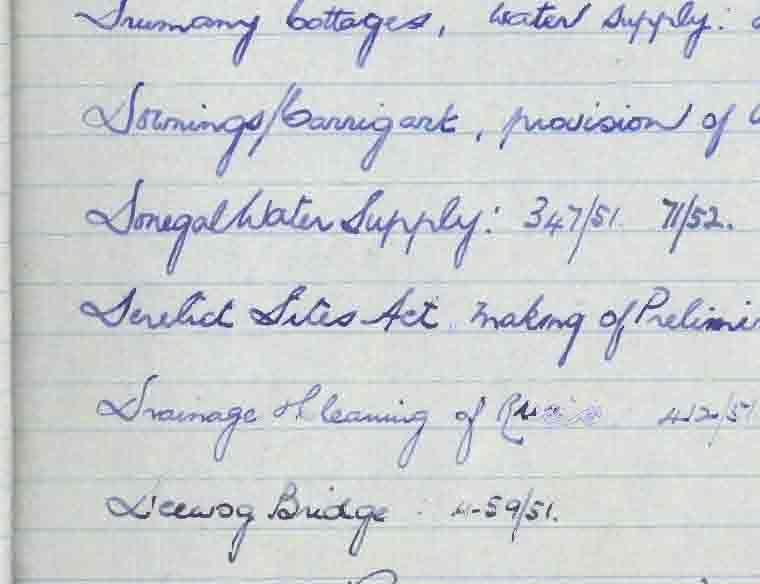 Drumany Cottages, Water Supply:
Downings/Carrigart, provision of
Donegal Water Supply: 347/51. 71/52.
Derelict Sites Act. Making of Prelimi
Drainage & Cleaning of 412/51
Bridge 459/51.